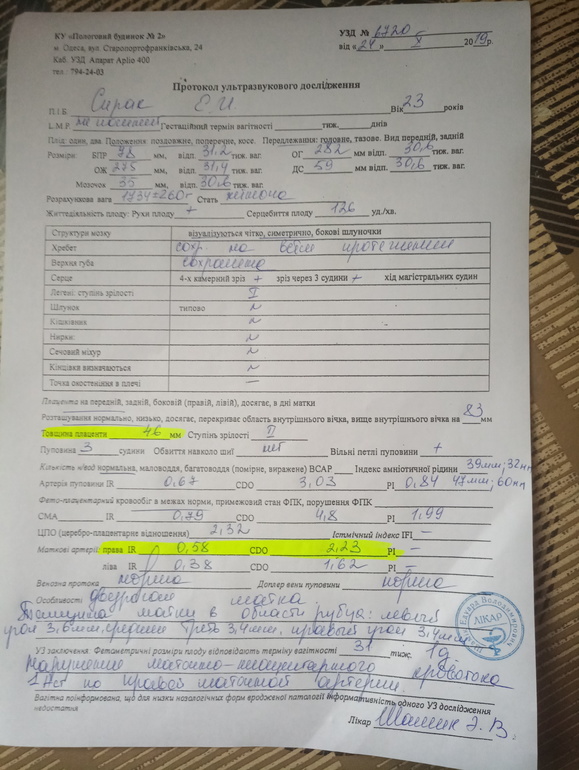 КУ «Пологовий будинок № 2»
м. Одеса, вул. Старопортофранківська, 24
Каб. УЗД Апарат Aplio 400
тел.: 794-24-03
УЗД № 6720
від «24» X 2019р.
Протокол ультразвукового дослідження
П.І.Б. Сирос Е.И. Вік 23 років
L.M.P. Гестаційний термін вагітності тиж. днів
Плід: один, два. Положення: поздовжнє, поперечне, косе. Передлежання: головне, тазове. Вид передній, задній
Розміри: БПР 78 мм, відп. 31.2 тиж. ваг. ОГ 282 мм відп. 30.6 тиж. ваг.
ОЖ 275 мм, відп. 31,4 тиж. ваг. ДС 59 мм відп. 30.6 тиж. ваг.
Мозочок 35 мм, відп. 30.6 тиж. ваг.
Розрахункова вага 1734±260г Стать
Життєдіяльність плоду: Рухи плоду + Серцебиття плоду 126 уд./хв.
Структури мозку візуалізуються чітко, симетрично, бокові шлуночки
Хребет сохр. на всем протяжении
Верхня губа сохранена
Серце 4-х камерний зріз + зріз через 3 судини + хід магістральних судин
Легені: ступінь зрілості I
Шлунок типово N
Кішківник N
Нирки: N
Сечовий міхур N
Кінцівки визначаються N
Точка окостеніння в плечі —
Плацента на передній, задній, боковій (правій, лівій), досягає, в дні матки
Розташування нормально, низько, досягає, перекриває область внутрішнього вічка, вище внутрішнього вічка на 83 мм
Товщина плаценти 46 мм Ступінь зрілості II
Пуповина 3 судини Обвиття навколо шиї нет Вільні петлі пуповини +
Кількість н/вод нормальна, маловоддя, багатоводдя (помірне, виражене) ВСАР Індекс амніотичної рідини 39мм; 32мм
Артерія пуповини IR 0,67 CDO 3,03 PI 0,84 47мм; 60мм
Фето-плацентарний кровообіг в межах норми, примежовий стан ФПК, порушення ФПК
СМА IR 0,79 CDO 4,8 PI 1,99
ЦПО (церебро-плацентарне відношення) 2,32 Істмічний індекс IFI —
Маткові артерії: права IR 0,58 CDO 2,23 PI —
ліва IR 0,38 CDO 1,62 PI —
Венозна протока норма Доплер вени пуповини норма
Особливості двурогая матка
Толщина матки в области рубца: левый
угол 3,6мм, средняя треть 3,4мм, правый угол 3,4мм
УЗ заключення. Фетаметричні розміри плоду відповідають терміну вагітності 31 тиж.
Нарушение маточно-плацентарного кровотока
1А ст по правой маточной артерии.
Вагітна поінформована, що для низки нозологічних форм вродженої патології інформативність одного УЗ дослідження
недостатня
Лікар
ЛІКАР